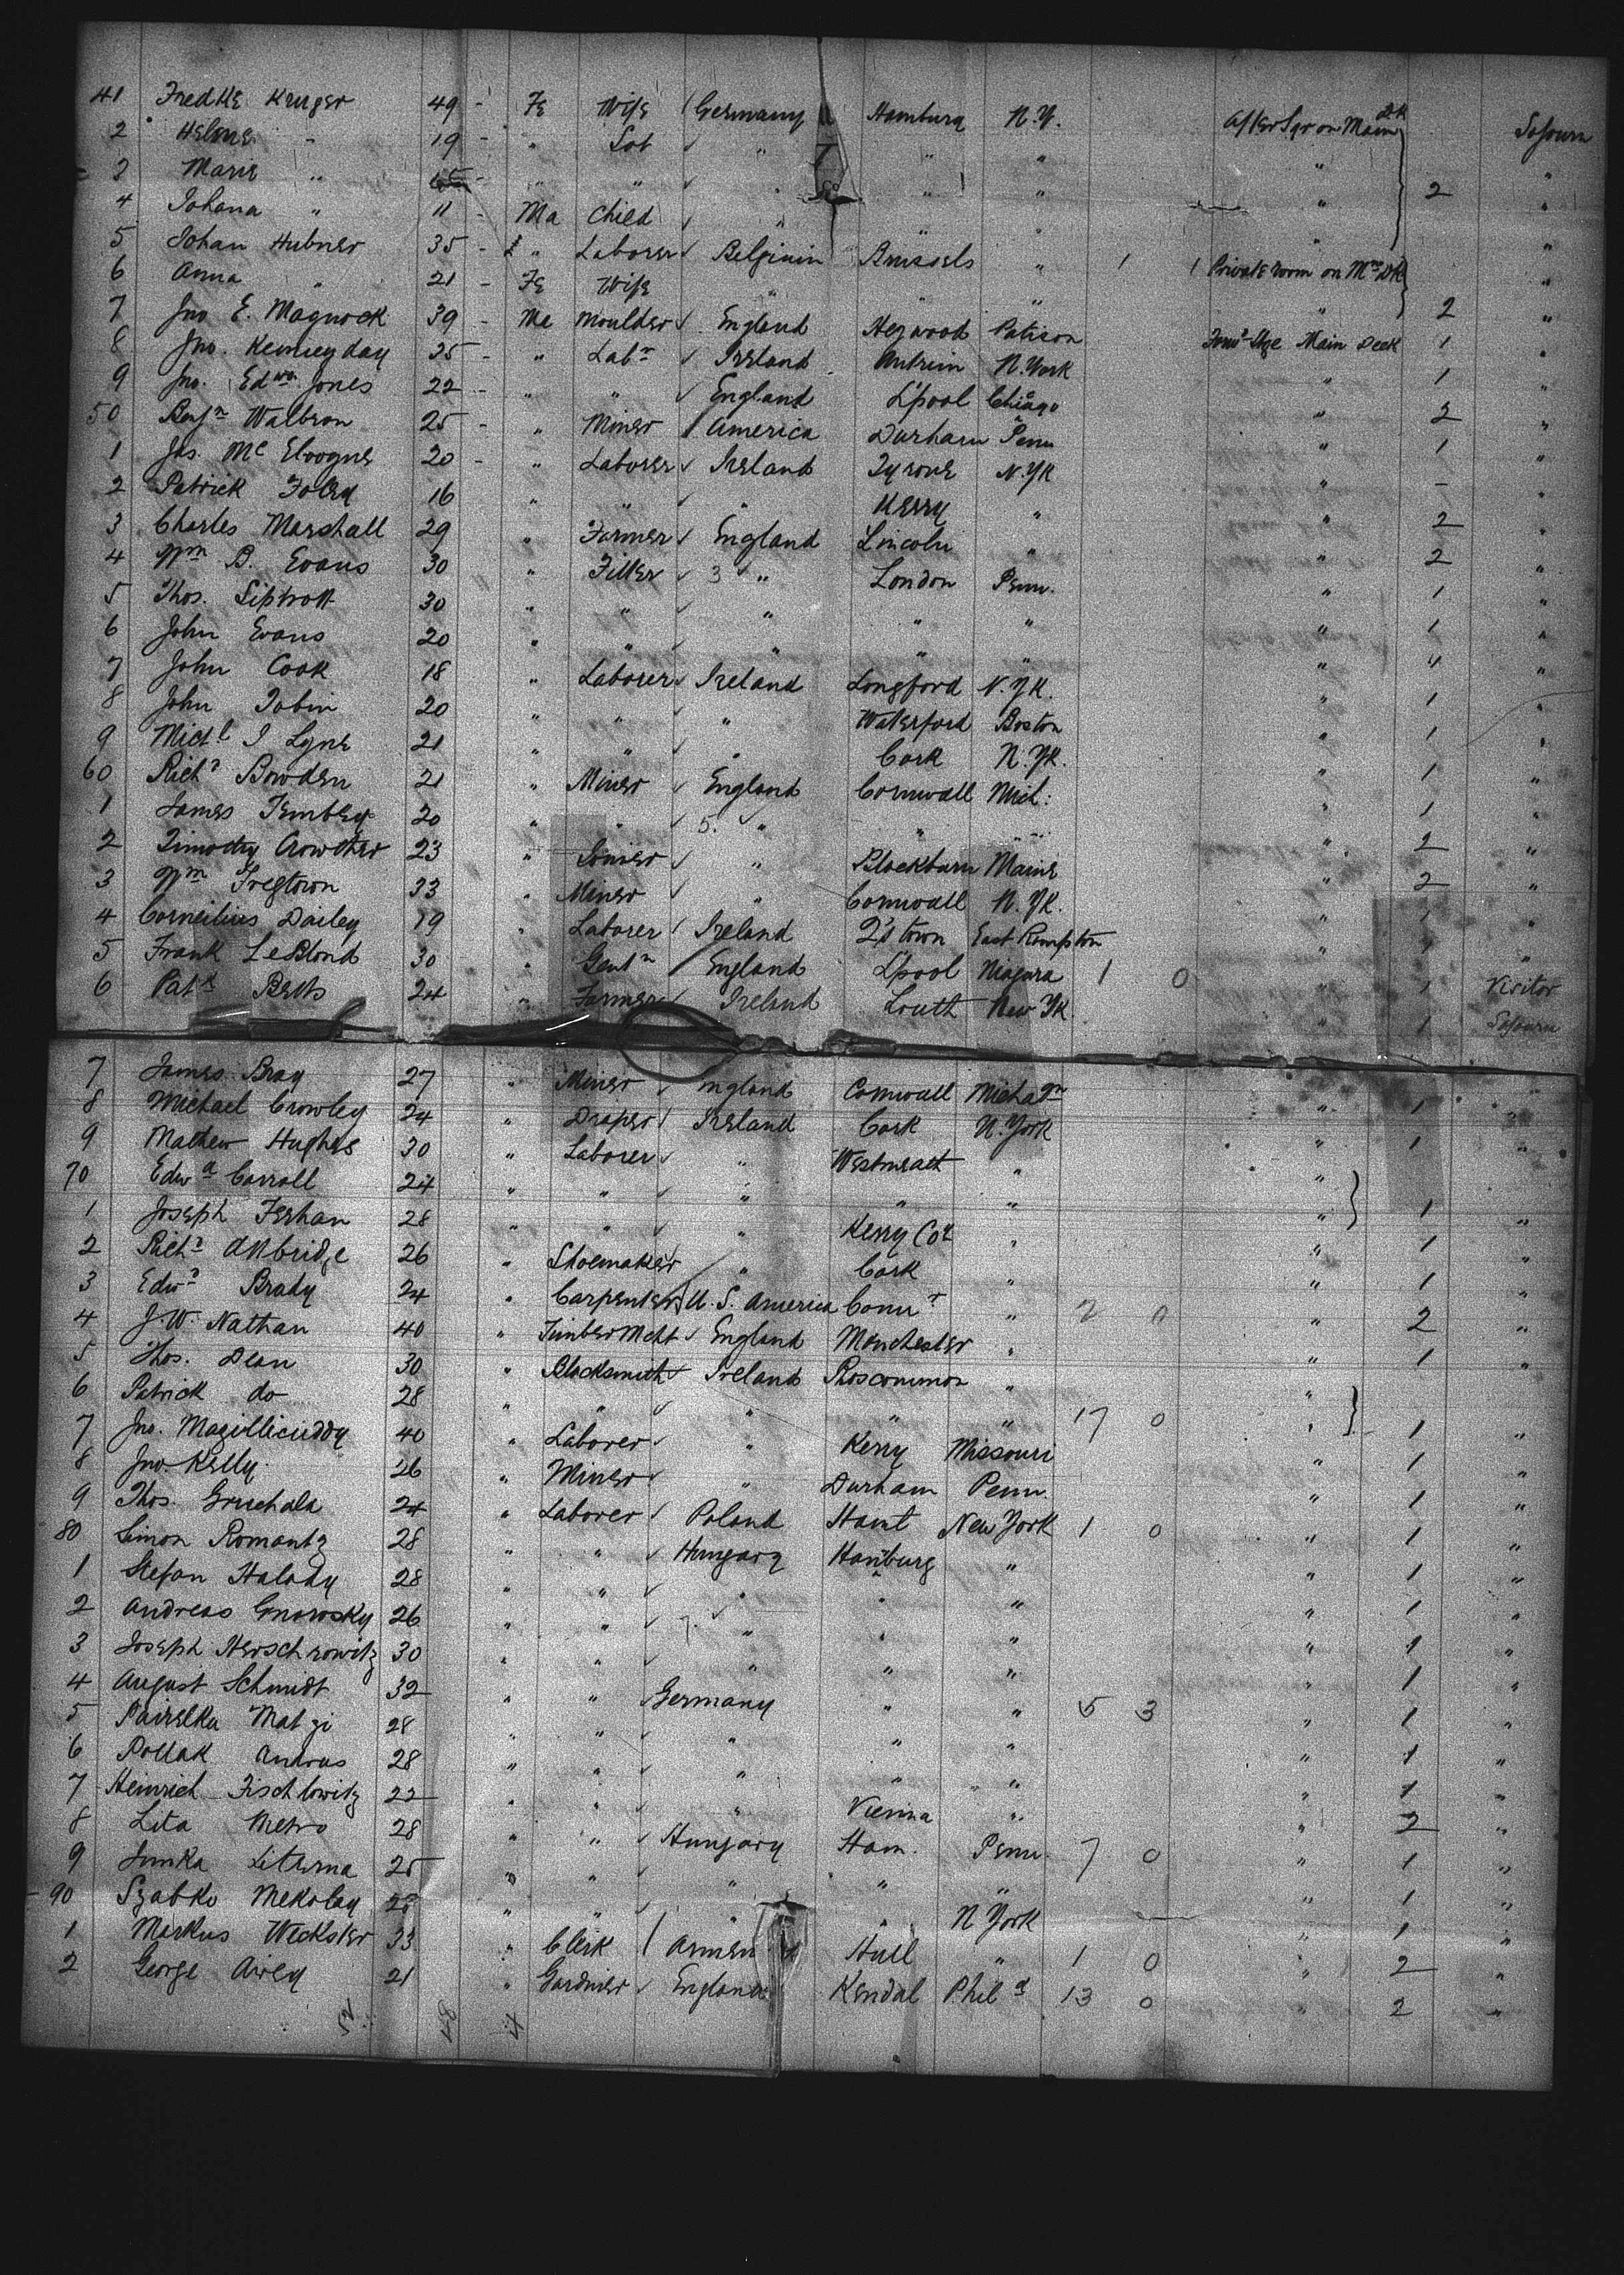 41 Fredke Kruger 49 - Fe Wife Germany Hamburg N.Y. After Sqr on Main Dk Sojourn
2 Helene " 19 - " " " " " "
3 Marie " - " " " " " " 2 "
4 Johana " 11 - Ma Child " " " " "
5 Johan Hubner 35 - " Laborer Belgium Brussels " 1 1 Private room on Mn Dk "
6 Anna " 21 - Fe Wife " " " " 2 "
7 Jno E. Magnock 39 - Ma Moulder England Heywood Patison Forwd Stge Main Deck 1 "
8 Jno. 25 - " Labr Ireland Antrim N. York " 1 "
9 Jno. Edwd Jones 22 - " " England L'pool Chicago " 2 "
50 Benjn Walbron 25 - " Miner America Durham Penn " 1 "
1 Jas. Mc 20 - " Laborer Ireland Tyrone N. Yk " - "
2 Patrick Foley 16 " " " Kerry " " 2 "
3 Charles Marshall 29 " Farmer England Lincoln " " 2 "
4 Wm B. Evans 30 " Fitter 3 " London Penn. " 1 "
5 Thos. Liptrott 30 " " " " " " 1 "
6 John Evans 20 " " " " " " " "
7 John Cook 18 " Laborer Ireland Longford N. Yk. " 1 "
8 John Tobin 20 " " " Waterford Boston " 1 "
9 Michl J Lyne 21 " " " Cork N. Yk. " 1 "
60 Richd Bowden 21 " Miner England Cornwall Mich: " 1 "
1 James Tembey 20 " " 5. " " " " 2 "
2 Timothy Crowther 23 " Joiner " Blackburn Maine " 2 "
3 Wm Tregtown 33 " Miner " Cornwall N. Yk. " 1 "
4 Corneilius Dailey 19 " Laborer Ireland Q'stown East Rompton " 1 "
5 Frank LeBlond 30 " Gentn England L'pool Niagara 1 0 " 1 Visitor
6 Patk Betts 24 " Farmer Ireland Louth New Yk. " 1 Sojourn
7 James Bray 27 " Miner ngland Cornwall Michagn " 1 "
8 Michael Crowley 24 " Draper Ireland Cork N. York " 1 "
9 Mathew Hughes 30 " Laborer " Westmeath " "
70 Edwd Carroll 24 " " " " " " 1 "
1 Joseph Ferhan 28 " " " Kerry Co " " 1 "
2 Richd Attbridge 26 " Shoemaker " Cork " " 1 "
3 Edwd Brady 24 " Carpenter U. S. America Connt " 2 0 " 2 "
4 J. W. Nathan 40 " Timber Mcht England Manchester " " 1 "
5 Thos. Dean 30 " Blacksmith Ireland Roscommon " "
6 Patrick do 28 " " " " " 17 0 " 1 "
7 Jno. Magillicuddy 40 " Laborer " Kerry Missouri 1 "
8 Jno. Kelly. 26 " Miner " Durham Penn. " 1 "
9 Thos. Gruchala 24 " Laborer Poland Hamt New York 1 0 " 1 "
80 Simon Romantz 28 " " Hungary Hamburg " " 1 "
1 Stefan Halady 28 " " " " " " 1 "
2 Andreas Gnorosky 26 " " 7. " " " " 1 "
3 Joseph Herschrowitz 30 " " " " " " 1 "
4 August Schmidt 32 " " Germany " " 5 3 " 1 "
5 Matzi 28 " " " " " " 1 "
6 Pollak Andras 28 " " " " " " 1 "
7 Heinrich Fischlowitz 22 " " " Vienna " " 2 "
8 Lita Metro 28 " " Hungary Ham. Penn. 7 0 " 1 "
9 Junka Liturna 25 " " " " " " 1 "
90 Szabko Mekolay " " " " N York " 1 "
1 Markus Weckster 33 " Clerk Hull " 1 0 " 2 "
2 George Airey 21 " Gardnier England Kendal Phild 13 0 " 2 "